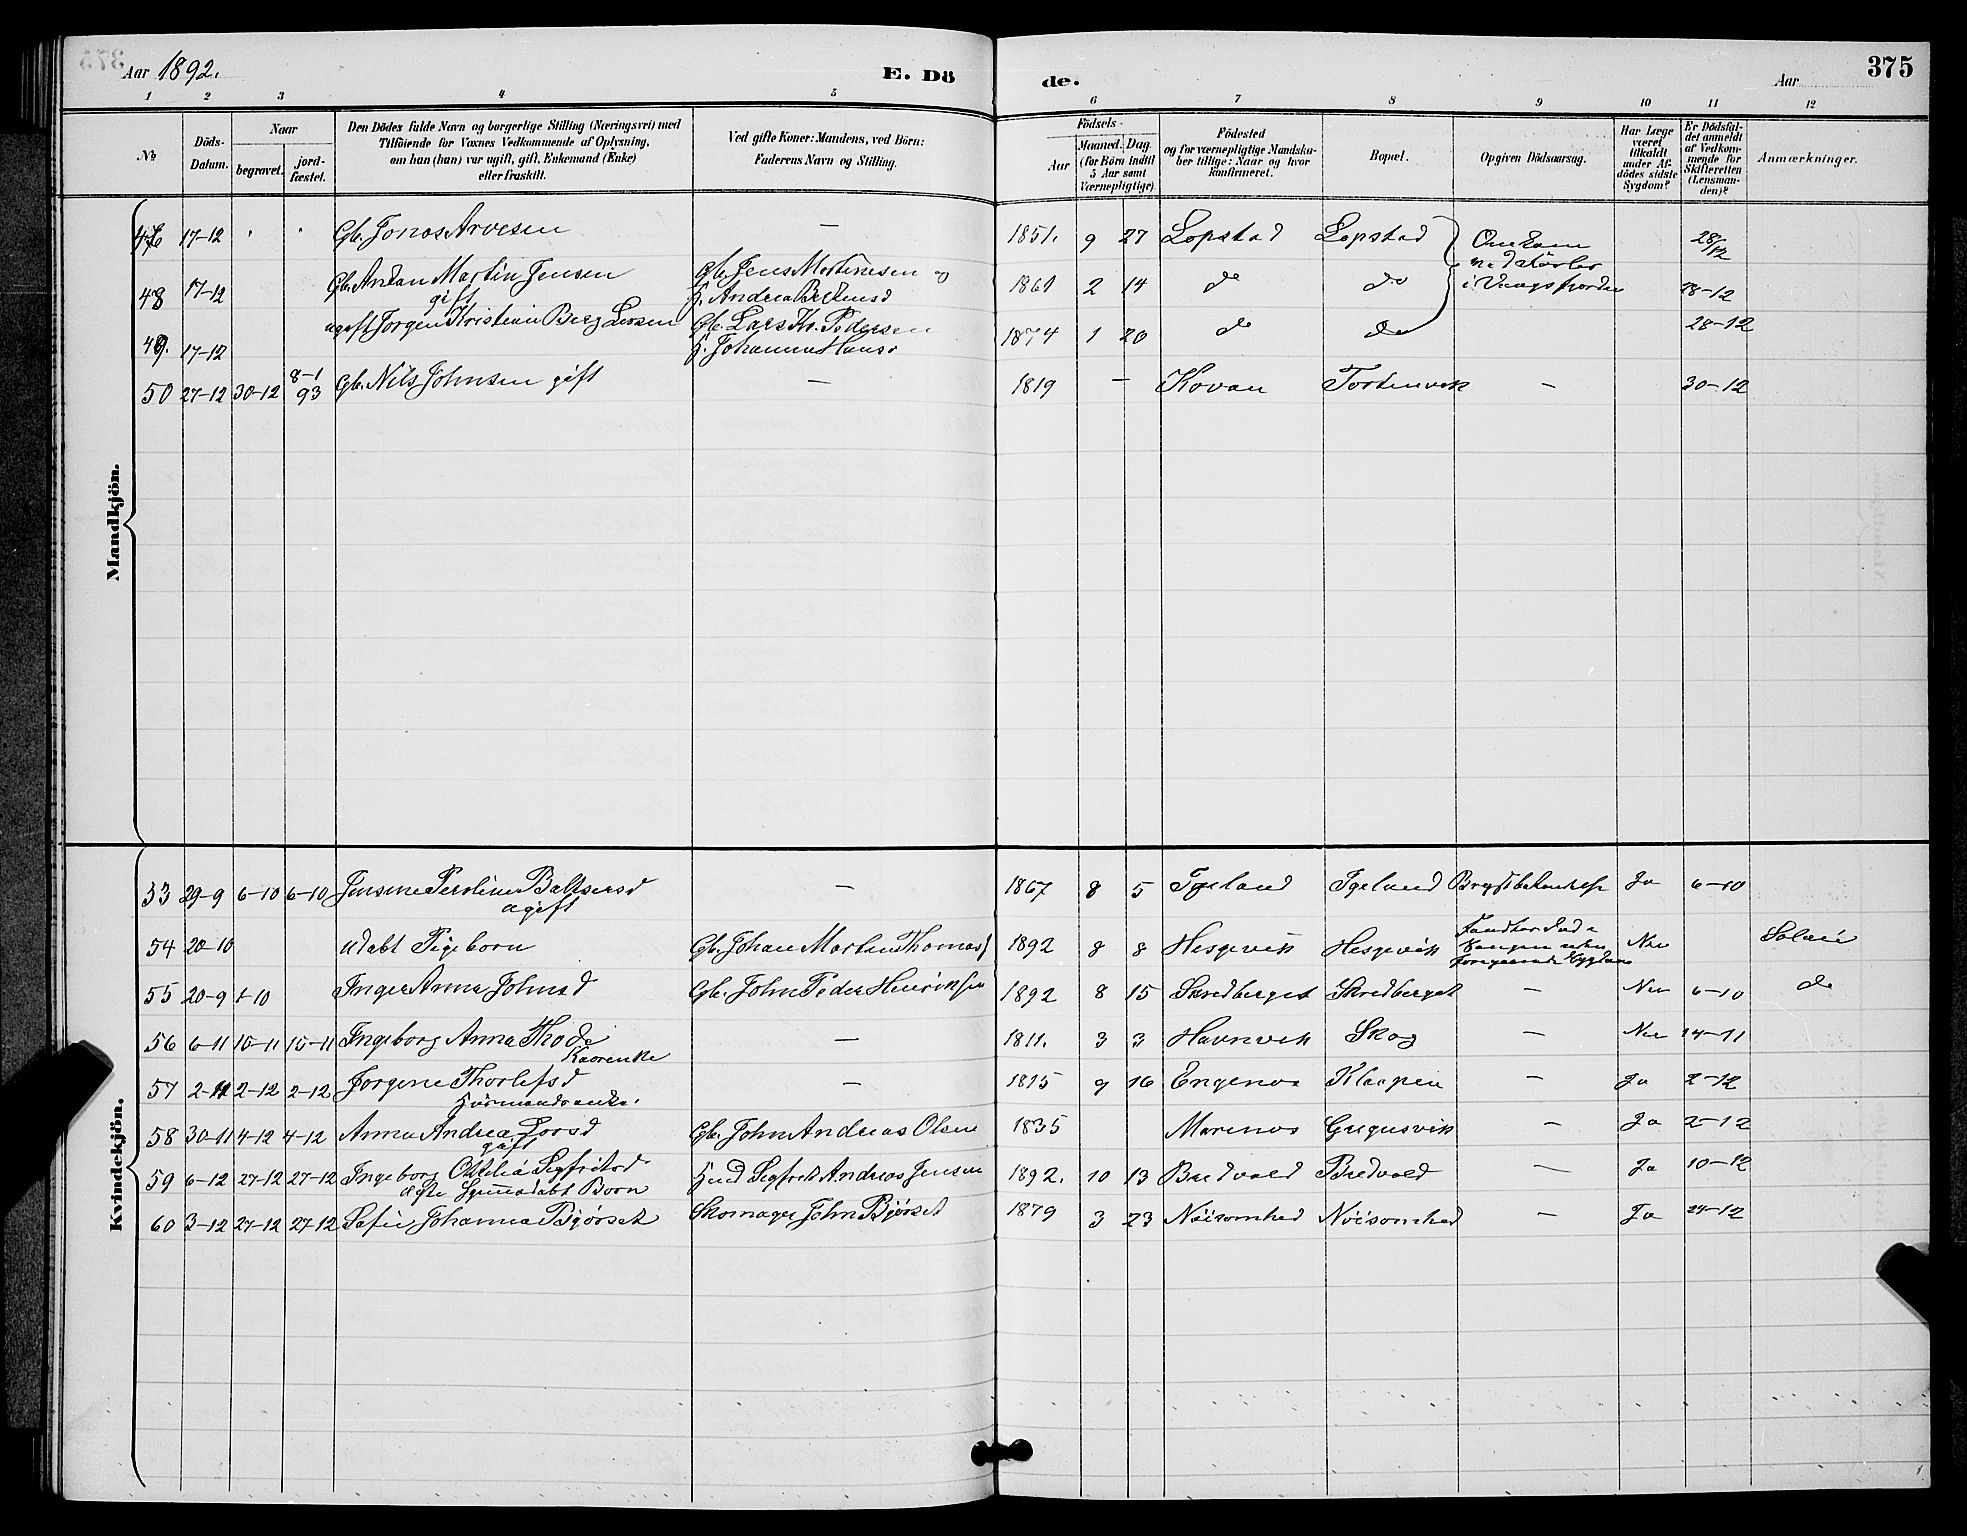 Aar 1892.
E. Dö
de.
Aar
375
1 2 3 4 5 6 7 8 9 10 11 12
No
Döds-Datum.
Naar
begravet.
jord-fæstet.
Den Dödes fulde Navn og borgerlige Stilling (Næringsvei) med
Tilföiende for Voxnes Vedkommende af Oplysning,
om han (hun) var ugift, gift, Enkemand (Enke)
eller fraskilt.
Ved gifte Koner: Mandens, ved Börn:
Faderens Navn og Stilling.
Födsels-
Aar
Maaned. Dag.
(for Börn indtil
5 Aar samt
Værnepligtige).
Födested
og for værnepligtige Mandska-
ber tillige: Naar og hvor
konfirmeret.
Bopæl.
Opgiven Dödsaarsag.
Har Læge
været
tilkaldt
under Af-
dödes sidste
Sygdom?
Er Dödsfal-
det anmeldt
af Vedkom-
mende for
Skifteretten
(Lensman-
den)?
Anmærkninger.
Mandkjön.
47 17-12 " " Gb. Jonas Arvesen — 1851. 9 27 Lopstad Lopstad Omkom 28/12
48 17-12 Gb. Anton Martin Jensen Gb. Jens Mortinesen og 1861 2 14 do do i Vaagsfjorden 28-12
gift
49. 17-12 ugift Jørgen Kristian Berg Larsen Gb. Lars Kr. Pedersen 1874 1 20 do do 28-12
H. Johanna Hansd
50 27-12 30-12 8-1 93 Gb. Nils Johnsen gift — 1819 — Kovan Tortenvik — 30-12
Kvindekjön.
53 29-9 6-10 6-10 Jensine Peroline Baltsersd — 1867 8 5 Igeland Igeland Ja 6-10
ugift
54 20-10 udøbt Pigeborn Gb. Johan Martin Thomas 1892 8 8 Hesgevik Hesgevik Nei
55 20-9 1-10 Inger Anna Johnsd Gb. John Peder Henriksen 1892 8 15 Skredberget Skredberget — Nei 6-10 do
56 6-11 15-11 15-11 Ingeborg Anna Thode — 1811. 3 3 Havnvik Skog — Nei 14-11
Kaarenke
57 2-11 2-12 2-12 Jørgine Thorlefsd — 1815 9 16 Engenes Klaapen — Ja 2-12
Husmandsenke.
58 30-11 4-12 4-12 Anna Andrea Larsd Gb. John Andreas Olsen 1835 Marenos Gregusvik — Ja 2-12
gift
59 6-12 27-12 27-12 Ingeborg Otthilie Segfritsd Hmd Segfrid Andreas Jensen 1892. 10 13 Bredvold Bredvold — Ja 10-12
ægte hjemmedøbt Born
60 3-12 27-12 27-12 Sofie Johanna Bjørset Skomager John Bjørset 1879 3 23 Nøisomhed Nøisomhed — Ja 24-12